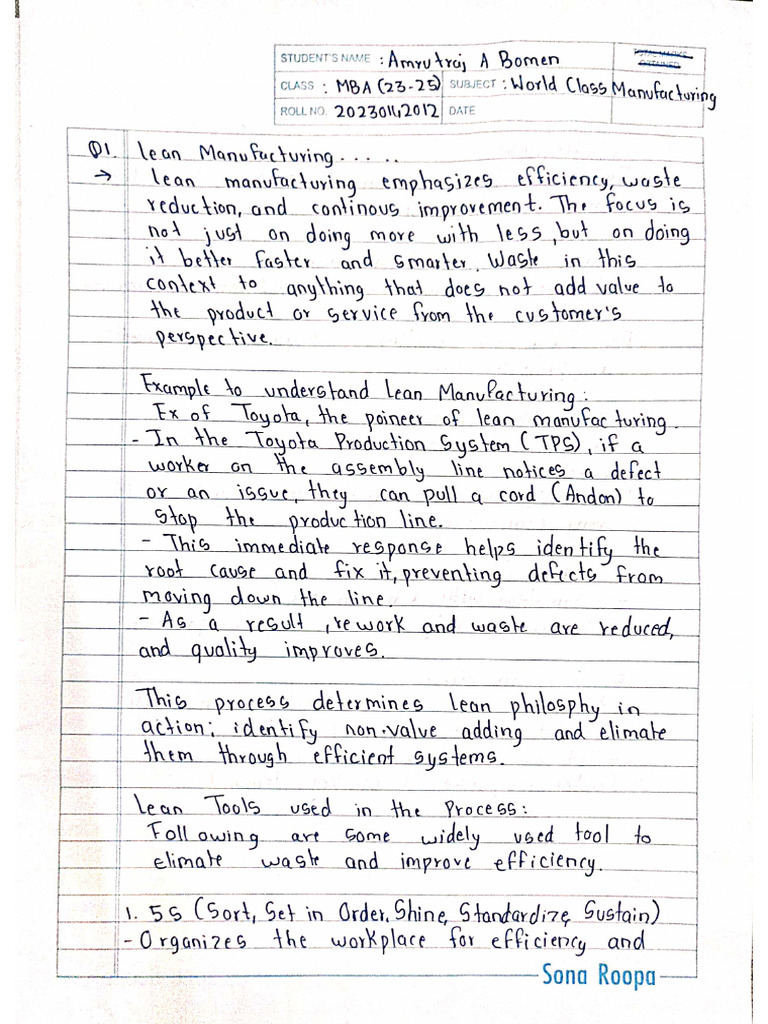 STUDENT'S NAME : Amrutraj A Bomen
TOTAL MARKS OBTAINED
CLASS : MBA (23-25) SUBJECT : World Class Manufacturing
ROLL NO. 2023011,2012 DATE
Q1. Lean Manufacturing.....
→ Lean manufacturing emphasizes efficiency, waste
reduction, and continous improvement. The focus is
not just on doing more with less, but on doing
it better faster and smarter. Waste in this
context to anything that does not add value to
the product or service from the customer's
perspective.
Example to understand Lean Manufacturing:
Ex of Toyota, the poineer of lean manufacturing.
- In the Toyota Production System (TPS), if a
worker on the assembly line notices a defect
or an issue, they can pull a cord (Andon) to
stop the production line.
- This immediate response helps identify the
root cause and fix it, preventing defects from
moving down the line.
- As a result, rework and waste are reduced,
and quality improves.
This process determines lean philosphy in
action; identify non-value adding and elimate
them through efficient systems.
Lean Tools used in the Process:
Following are some widely used tool to
elimate waste and improve efficiency.
1. 5S (Sort, Set in Order, Shine, Standardize, Sustain)
- Organizes the workplace for efficiency and
Sona Roopa